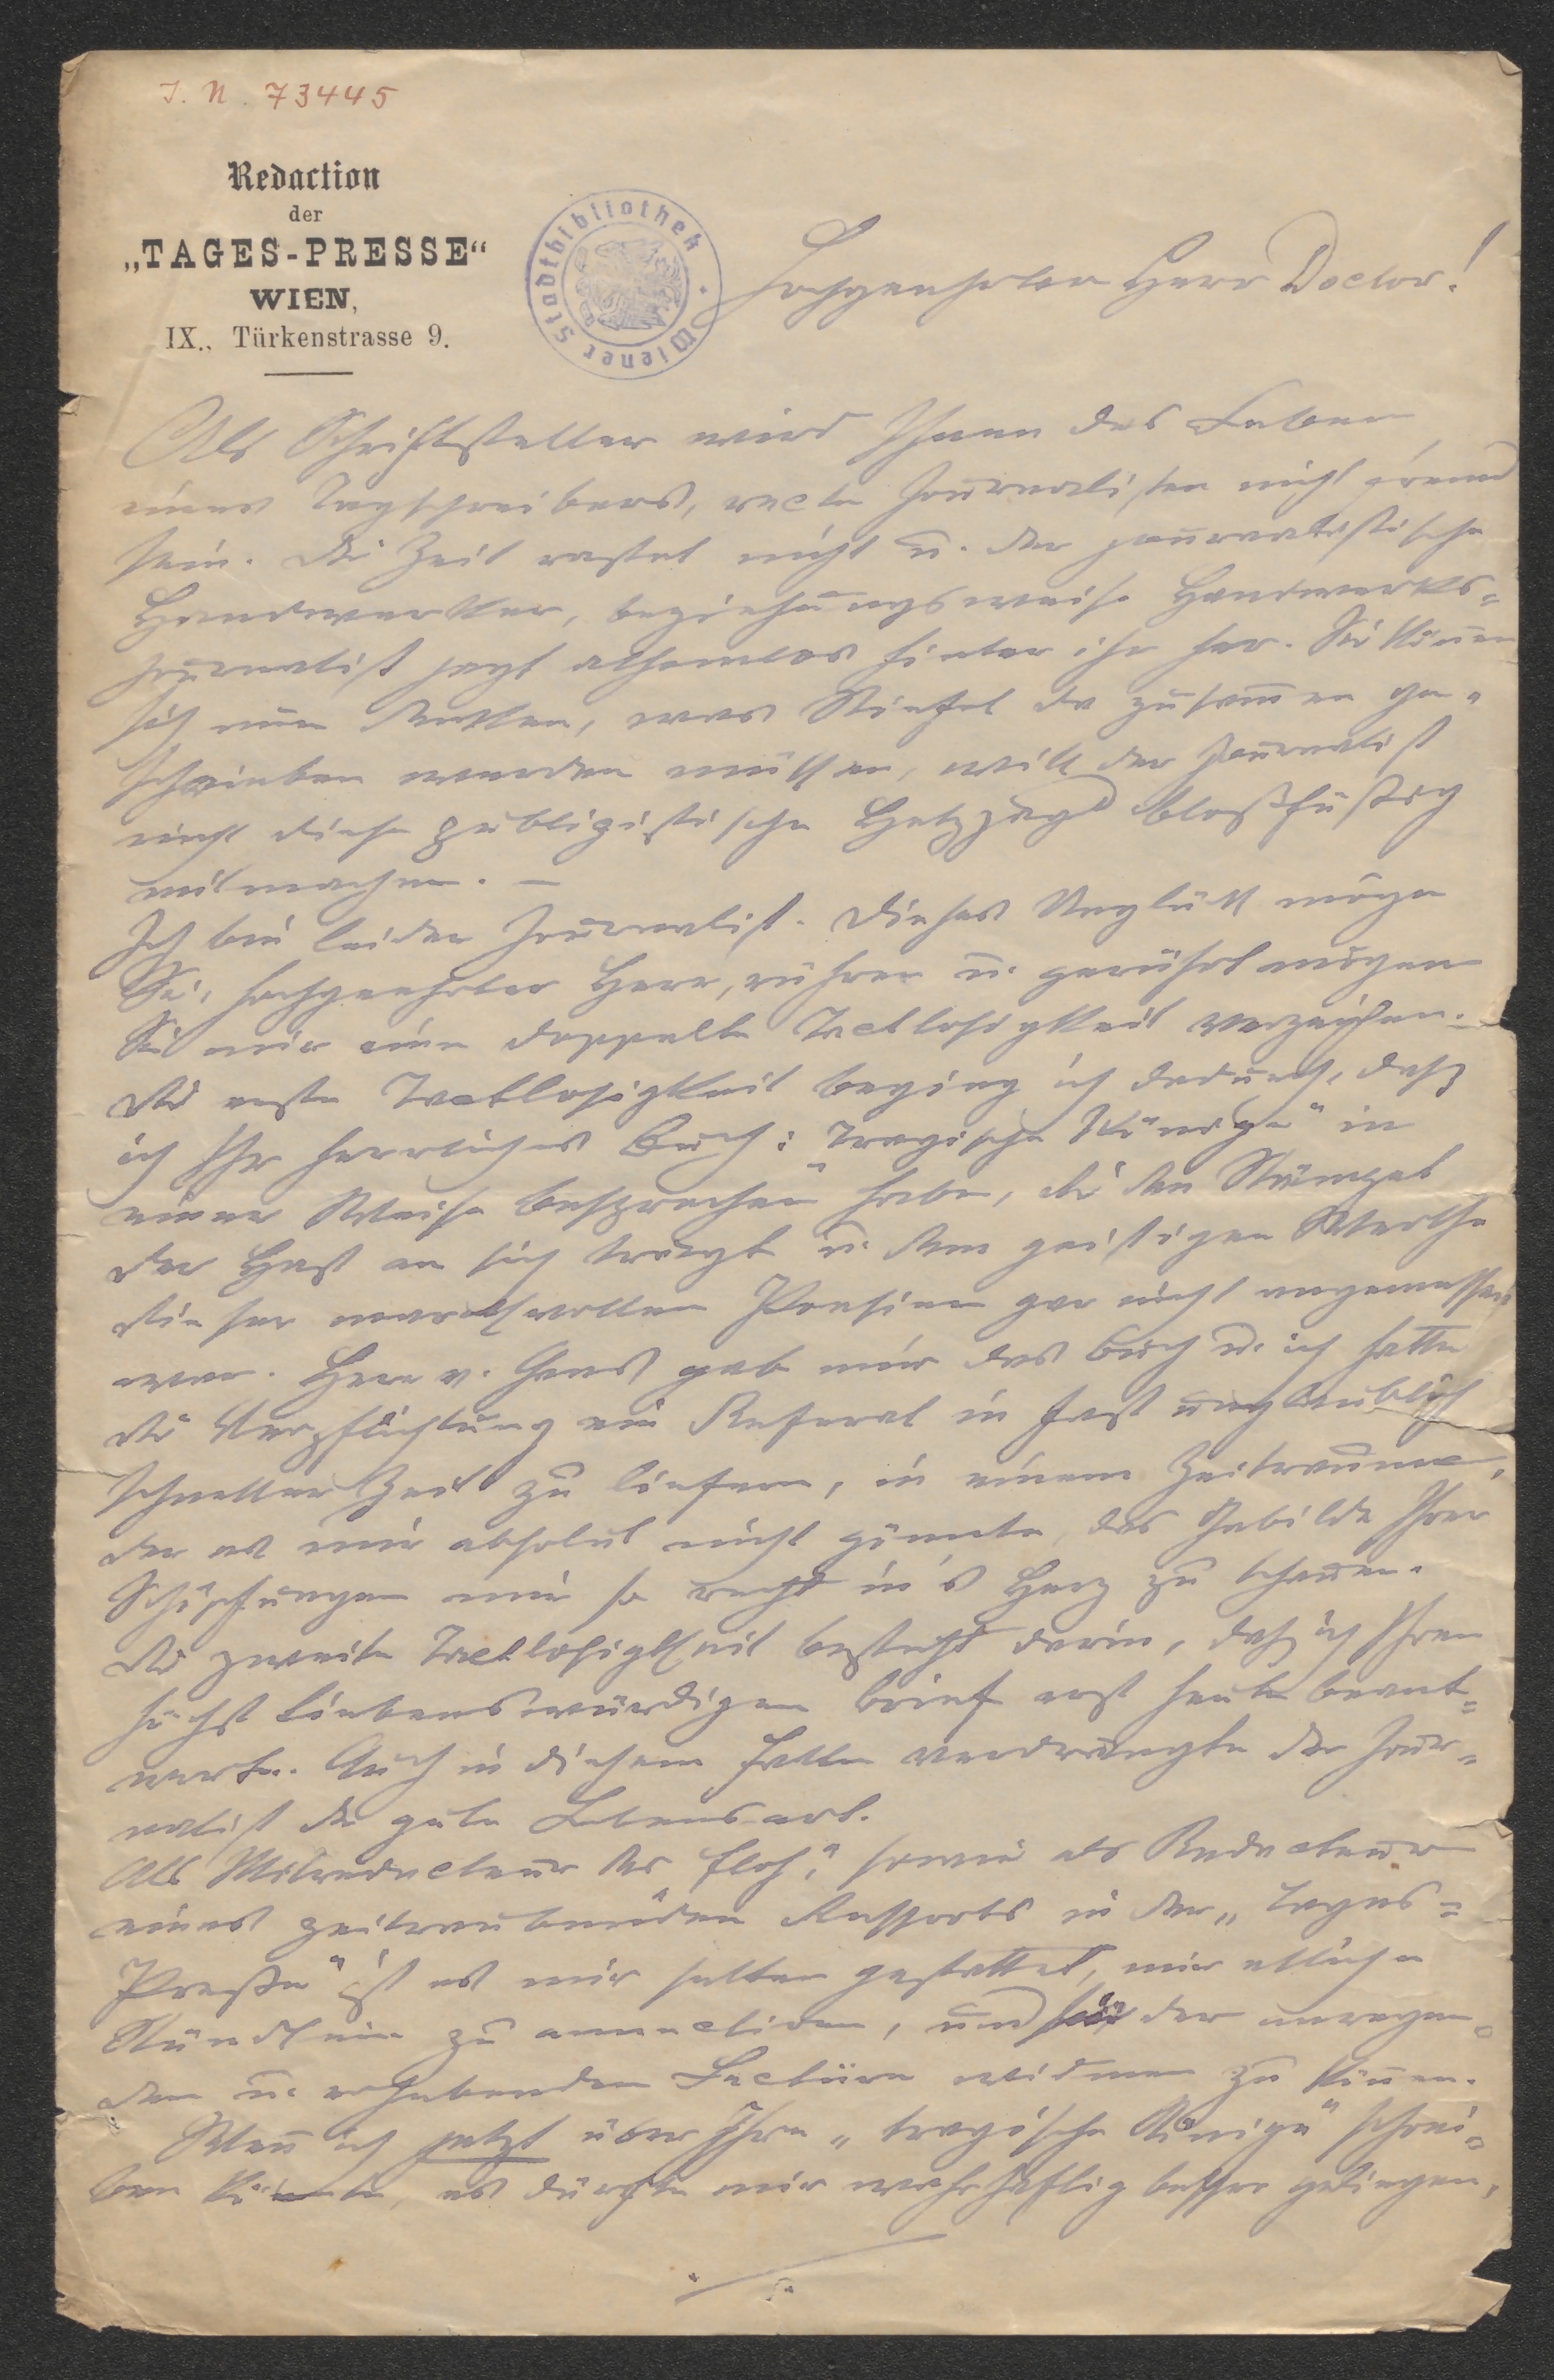 I. N. 73445
Redaction
der
„TAGES-PRESSE“
WIEN,
IX., Türkenstrasse 9.
Wiener Stadtbibliothek
Hochgeehrter Herr Doctor!
Als Schriftsteller wird Ihnen das Leben
eines Tagschreibers, recte Journalisten nicht fremd
sein. Die Zeit rastet nicht u. der journalistische
Handwerker, beziehungsweise Handwerks-
journalist jagt athemlos hinter ihr her. Sie können
sich nun denken, was Stiefel da zusammen ge-
schrieben werden müssen, will der Journalist
nicht diese publizistische Hetzjagd bloßfüßig
mitmachen. —
Ich bin leider Journalist. Dieses Unglück möge
Sie, hochgeehrter Herr, rühren u. gerührt mögen
Sie mir eine doppelte Tactlosigkeit verzeihen.
Die erste Tactlosigkeit beging ich dadurch, daß
ich Ihr herrliches Buch: „Tragische Könige“ in
einer Weise besprochen habe, die den Stämpel
der Hast an sich trägt u. dem geistigen Werthe
dieser markvollen Poesieen gar nicht angemessen
war. Herr v. Gans gab mir das Buch u. ich hatte
die Verpflichtung ein Referat in fast unglaublich
schneller Zeit zu liefern, in einem Zeitraume,
der es mir absolut nicht gönnte, das Gebilde Ihrer
Schöpfungen mir so recht in's Herz zu schauen.
Die zweite Tactlosigkeit besteht darin, daß ich Ihren
höchst liebenswürdigen Brief erst heute beant-
worte. Auch in diesem Falle verdrängte der Jour-
nalist die gute Lebensart.
Als Mitredacteur des „Floh“, sowie als Redacteur
eines zeitraubenden Ressorts in der „Tages-
Presse“ ist es mir selten gestattet, mir etliche
Stündlein zu annectiren, und sie der anregen-
den u. erhebenden Lectüre widmen zu können.
Wenn ich jetzt über Ihre „tragische Könige“ schrei-
ben könnte, es dürfte mir wahrhaftig besser gelingen,
./.